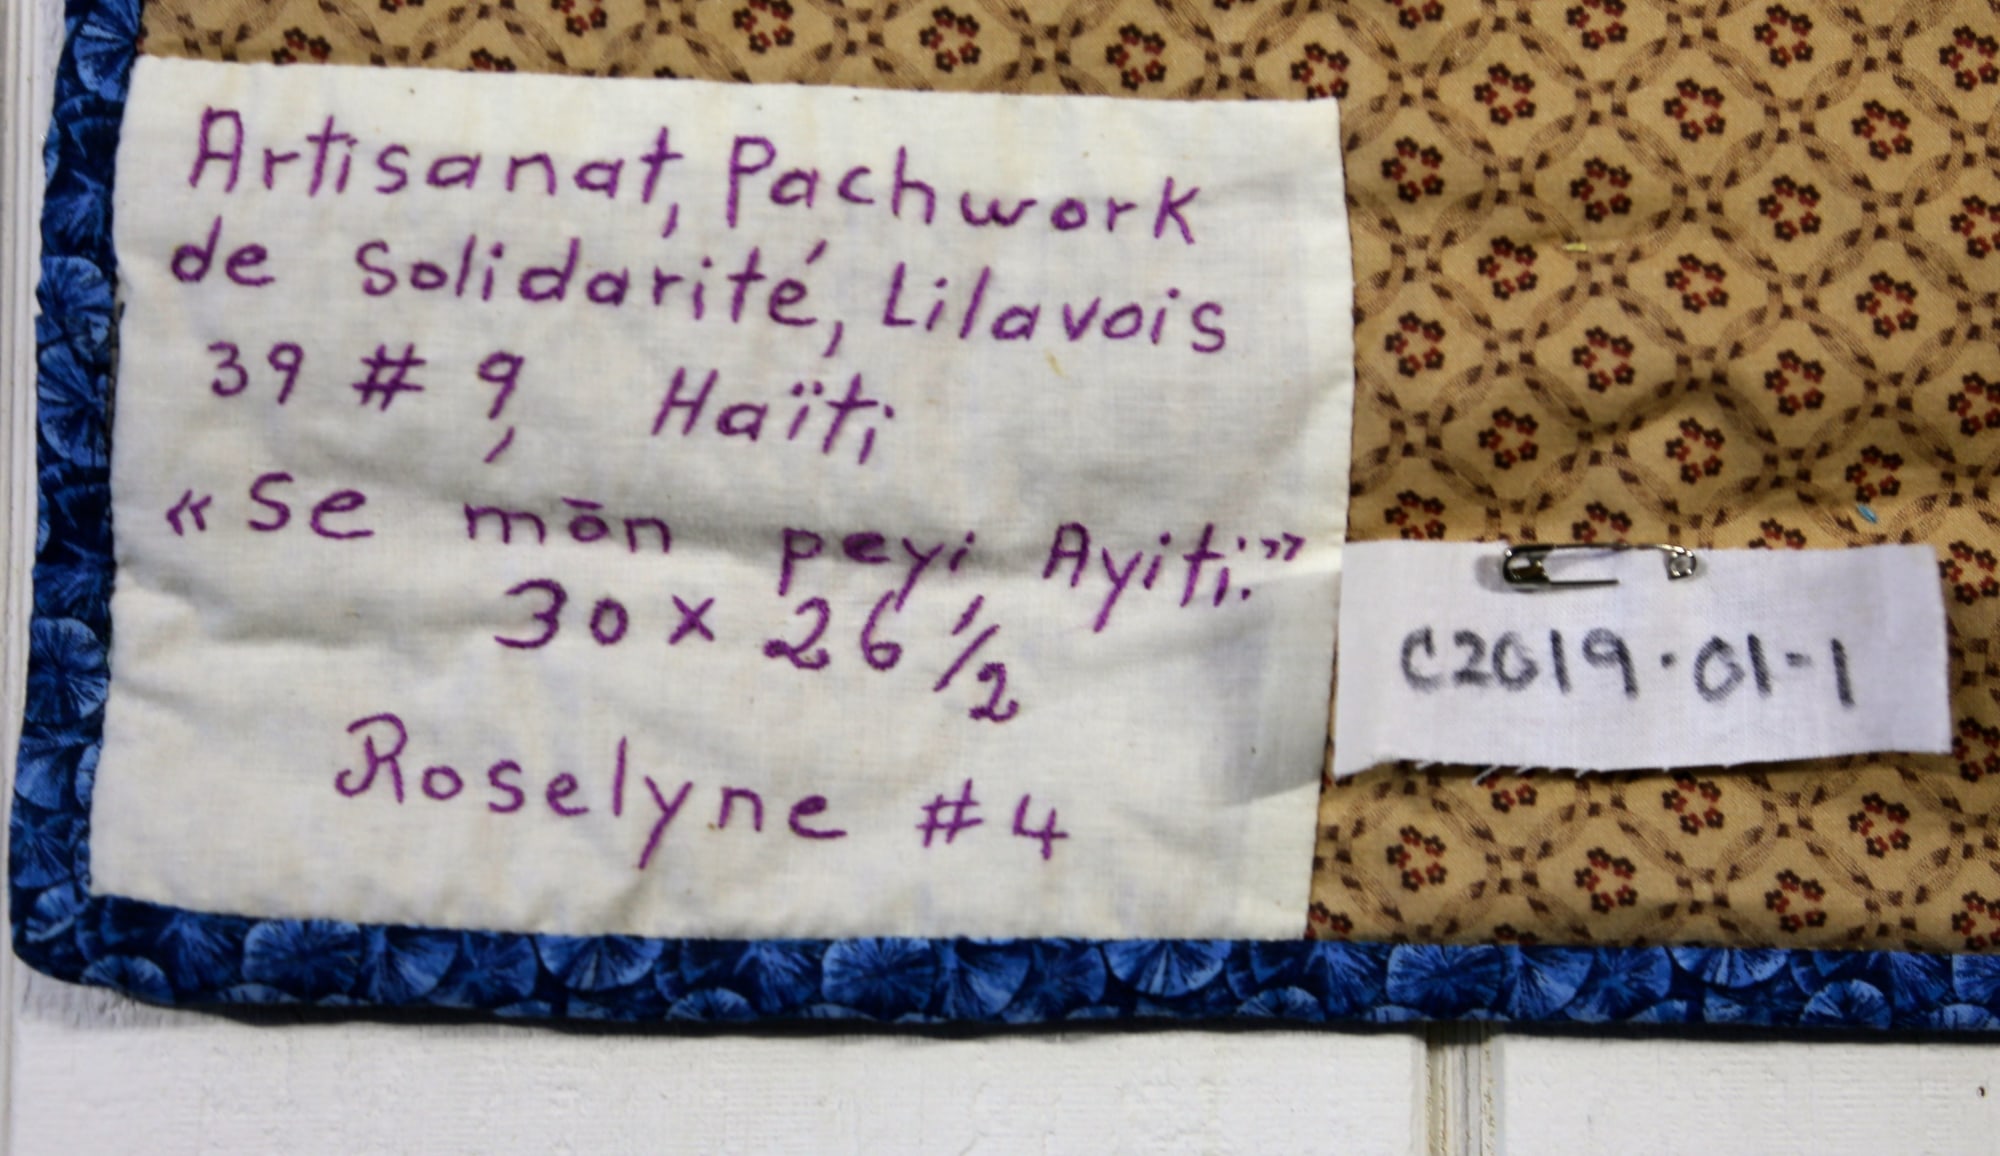 Artisanat, Pachwork
de Solidarité, Lilavois
39 # 9, Haïti
«Se mōn peyi Ayiti.»
30 x 26 1/2
Roselyne #4
C2019.01-1